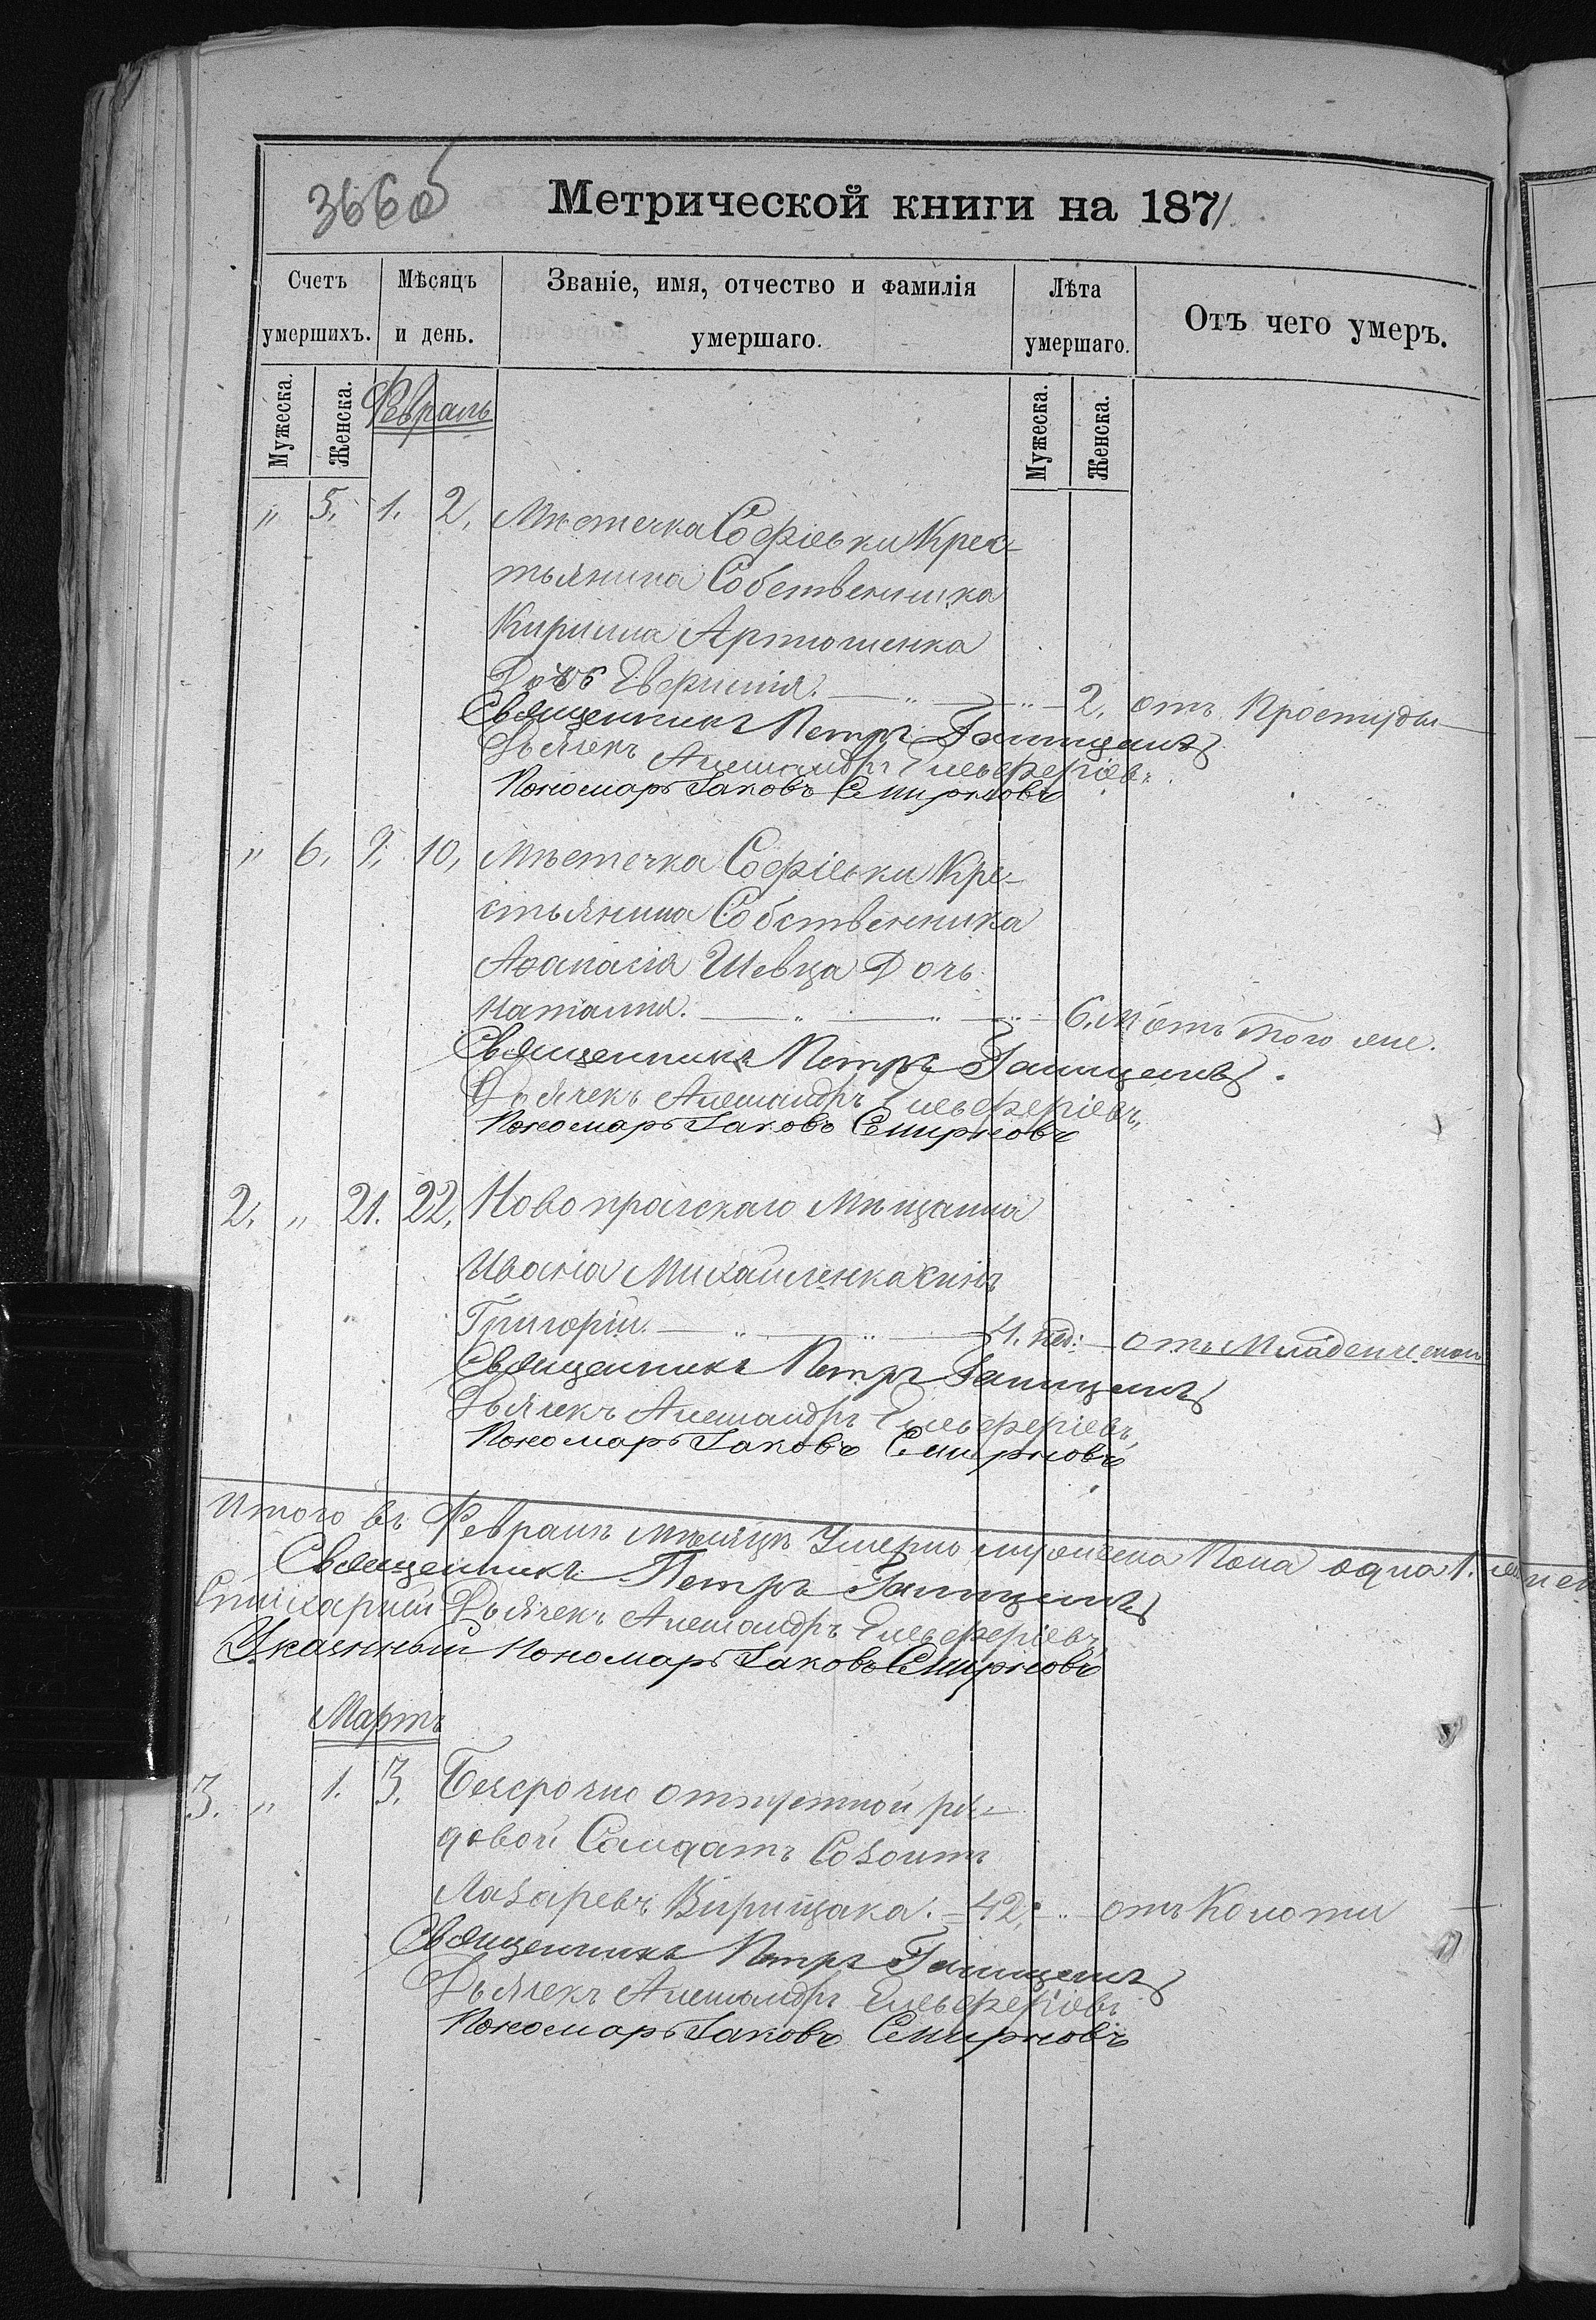 366об
Метрической книги на 1871
Счетъ умершихъ.
Мѣсяцъ и день.
Званіе, имя, отчество и фамилія умершаго.
Лѣта умершаго.
Отъ чего умеръ.
Мужеска.
Женска.
Февраль
Мужеска.
Женска.
" 5. 1. 2. Мѣстечка Софіевки Крес-
тьянина Собственника
Кирилла Артюшенка
Дочь Евфимія. — " — " — 2. отъ Простуды —
Священникъ Петръ
Дьячекъ Александръ Елевферіевъ.
Пономарь Іаковъ Смирновъ
" 6. 9. 10, Мѣстечка Софіевки Кре-
стьянина Собственника
Аѳанасія Шевца Дочь
Наталия. — " — " — " — 6. м. отъ того же.
Священникъ Петръ
Дьячекъ Александръ Елевферіевъ,
Пономарь Іаковъ Смирновъ
2. " 21. 22. Новопрагскаго Мѣщанина
Ивана Михайленка сынъ
Григорій. — " — " — 4. нед: — отъ Младенческой
Священникъ Петръ
Дьячекъ Александръ Елевферіевъ,
Пономарь Іаковъ Смирновъ
Итого въ Февралѣ мѣсяцѣ Умерло Пола одна 1.
Священникъ Петръ
Дьячекъ Александръ Елевферіевъ
Указнный Пономарь Іаковъ Смирновъ
Мартъ
3. " 1. 3. Безсрочно отпустной ря-
довой Солдатъ Созонтъ
Лазаревъ Кирищака. — 42. " отъ Колоты —
Священникъ Петръ
Дьячекъ Александръ Елевферіевъ
Пономарь Іаковъ Смирновъ